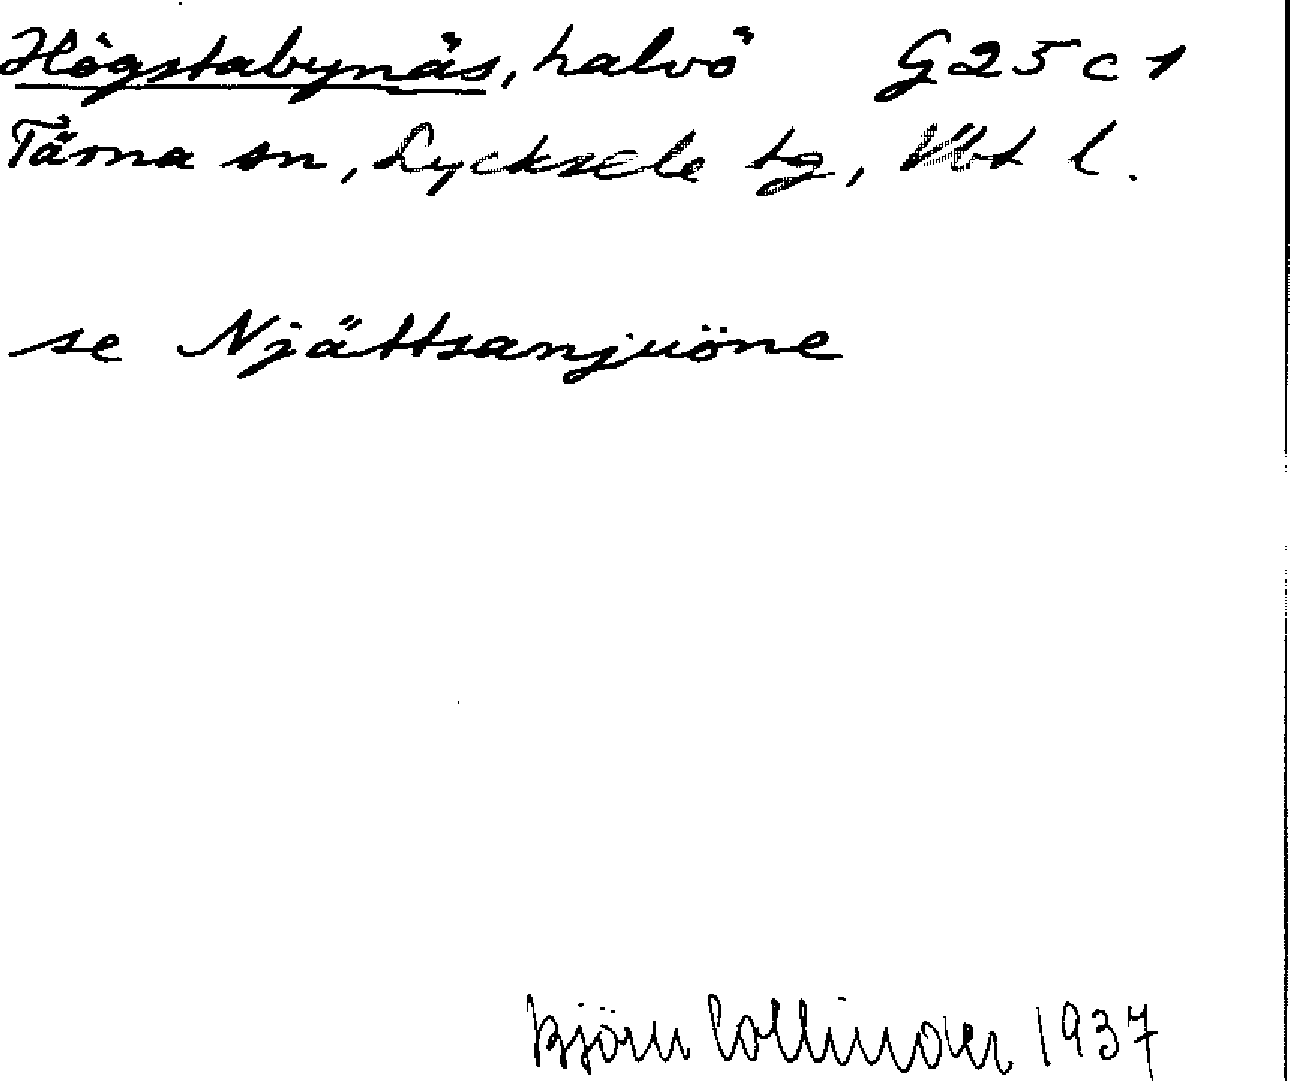 Högstabynäs, halvö G25c1
Tärna sn, Lycksele tg, Vbt l.
se Njättsanjuöne
Björn Collinder 1937